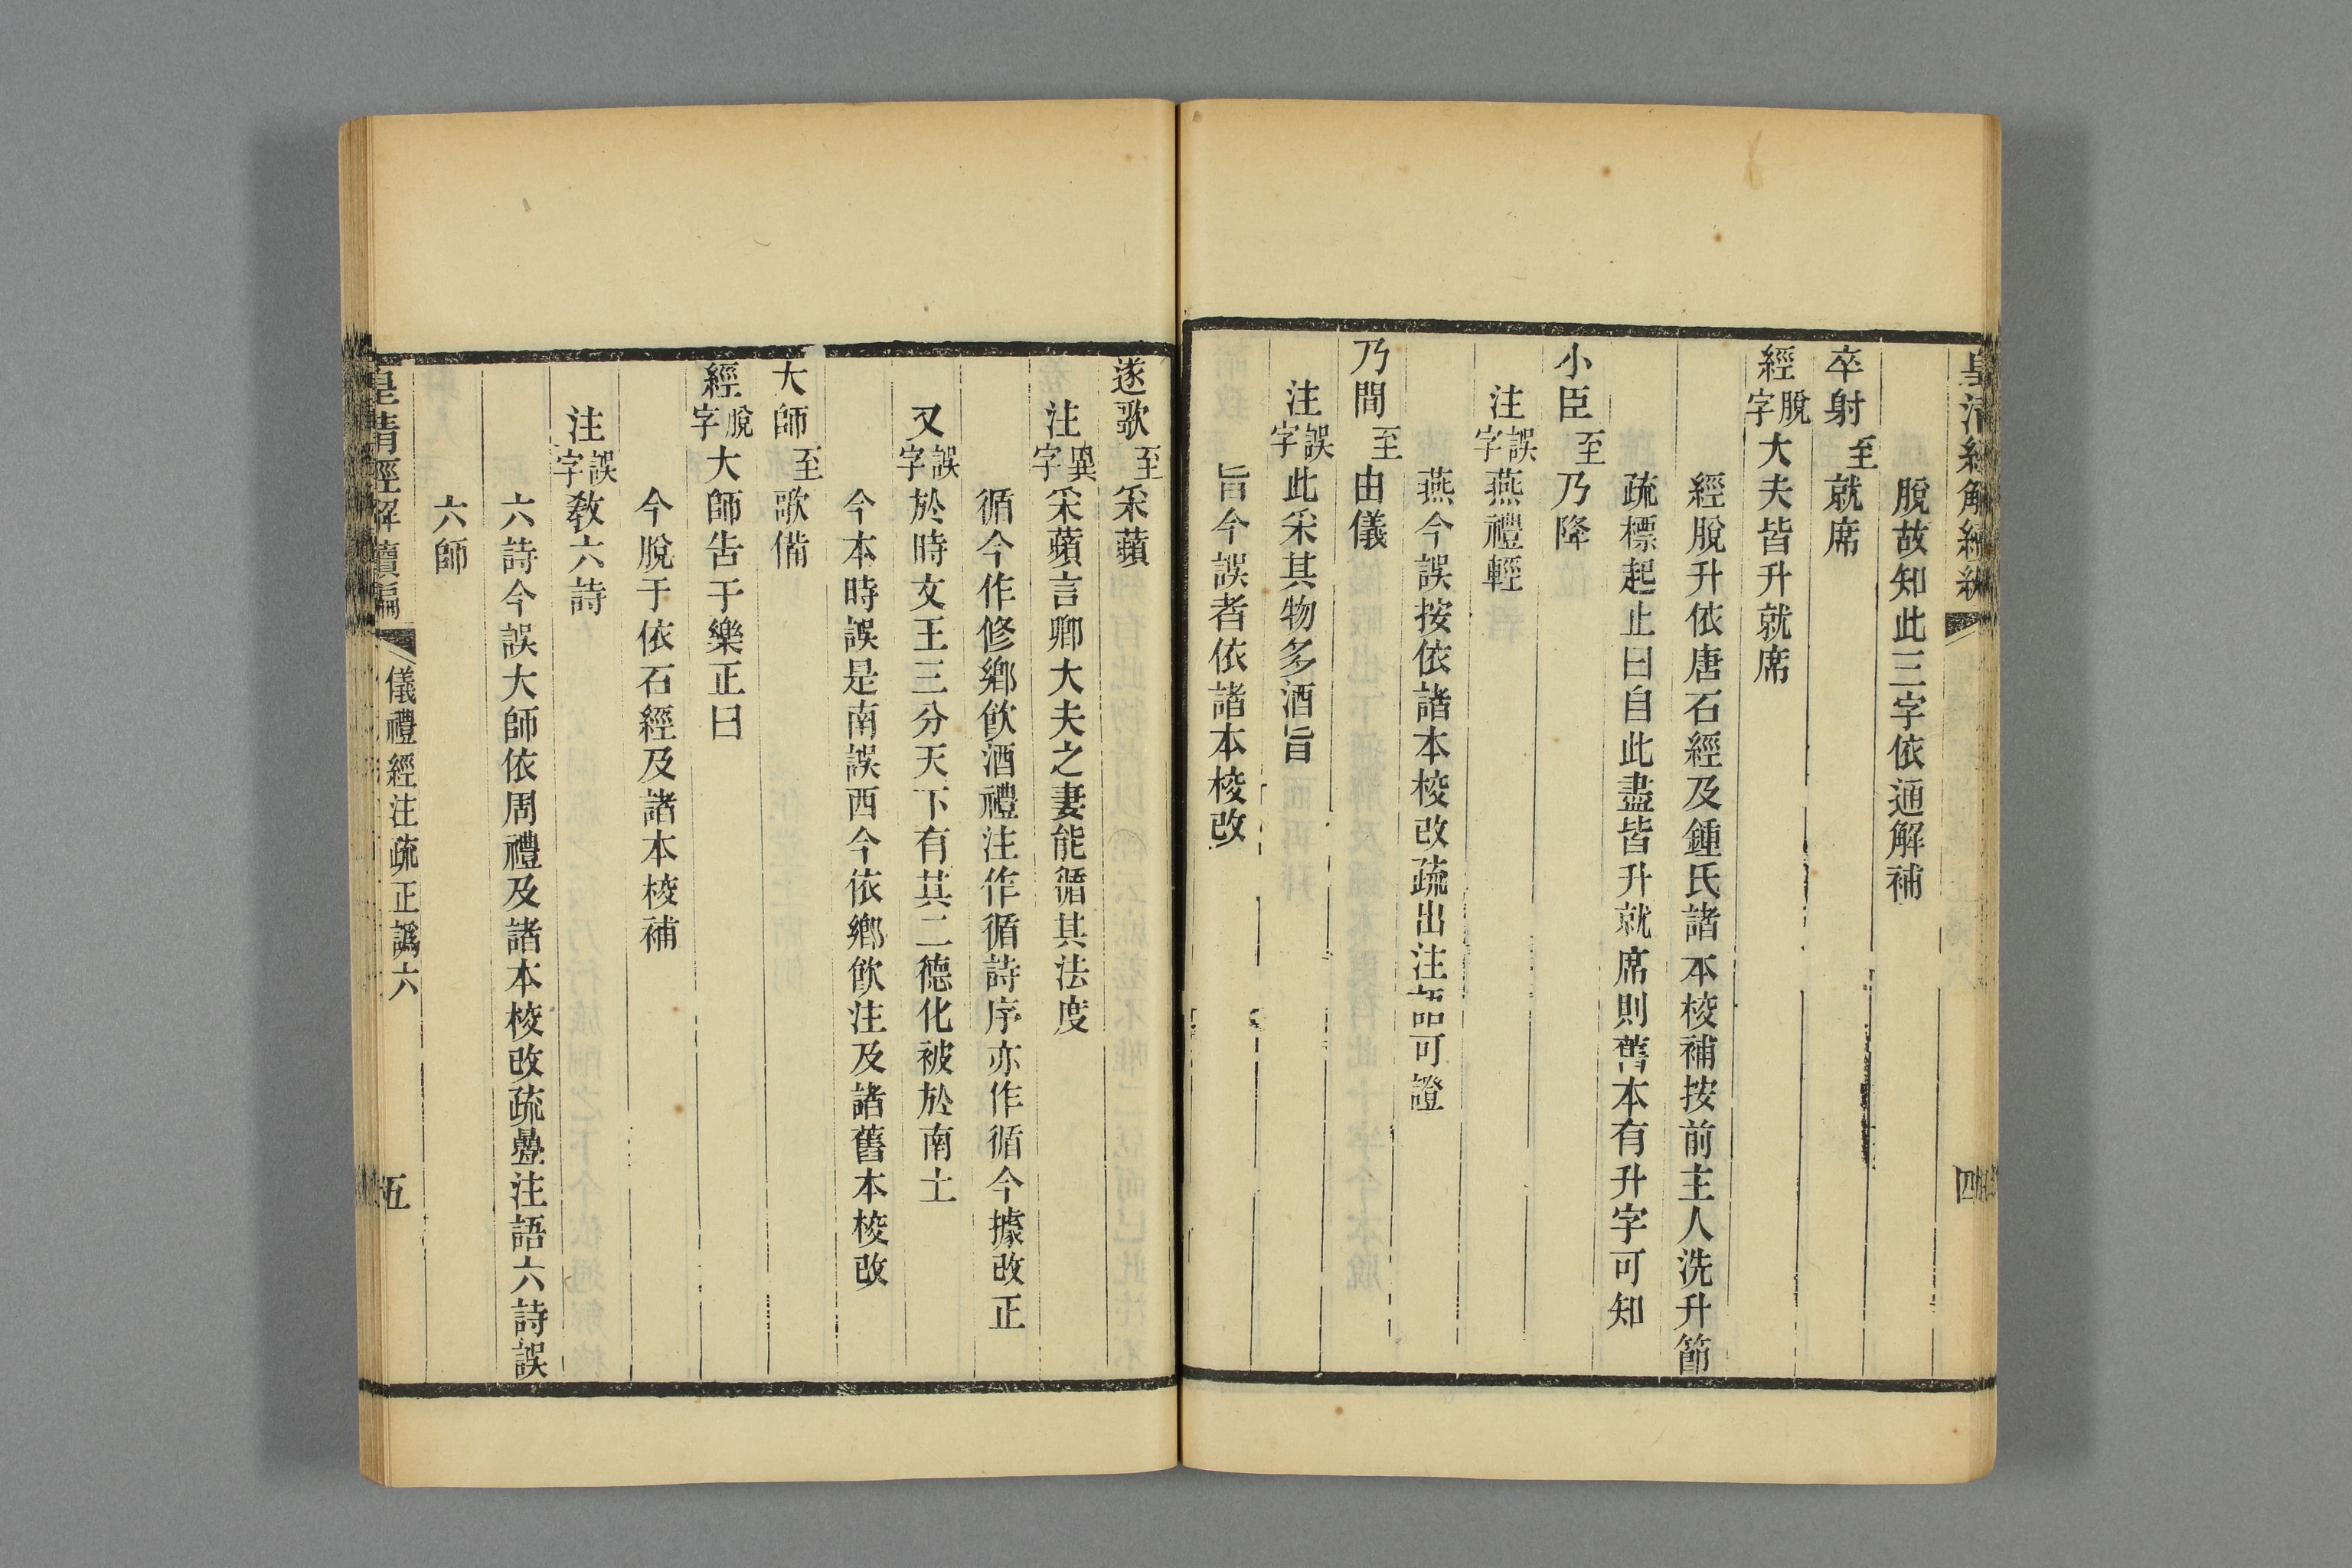 脫故知此三字依通解補
卒射至就席
經脫字大夫皆升就席
經脫升依唐石經及鍾氏諸本校補按前主人洗升節
疏標起止曰自此盡皆升就席則舊本有升字可知
小臣至乃降
注誤字燕禮輕
燕今誤按依諸本校改疏出注語可證
乃間至由儀
注誤字此采其物多酒旨
旨今誤者依諸本校改
四
遂歌至采蘋
注異字采蘋言卿大夫之妻能循其法度
循今作修鄉飲酒禮注作循詩序亦作循今據改正
又誤字於時文王三分天下有其二德化被於南土
今本時誤是南誤西今依鄉飲注及諸舊本校改
大師至歌備
經脫字大師告于樂正曰
今脫于依石經及諸本校補
注誤字教六詩
六詩今誤大師依周禮及諸本校改疏疊注語六詩誤
六師
皇清經解續編
儀禮經注疏正譌六
五